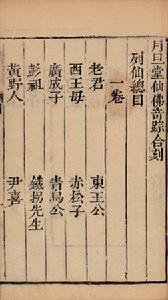 月旦堂仙佛奇踪合刻
列仙總目
一卷
老君 東王公
西王母 赤松子
廣成子 青烏公
彭祖 鐵拐先生
黃野人 尹喜